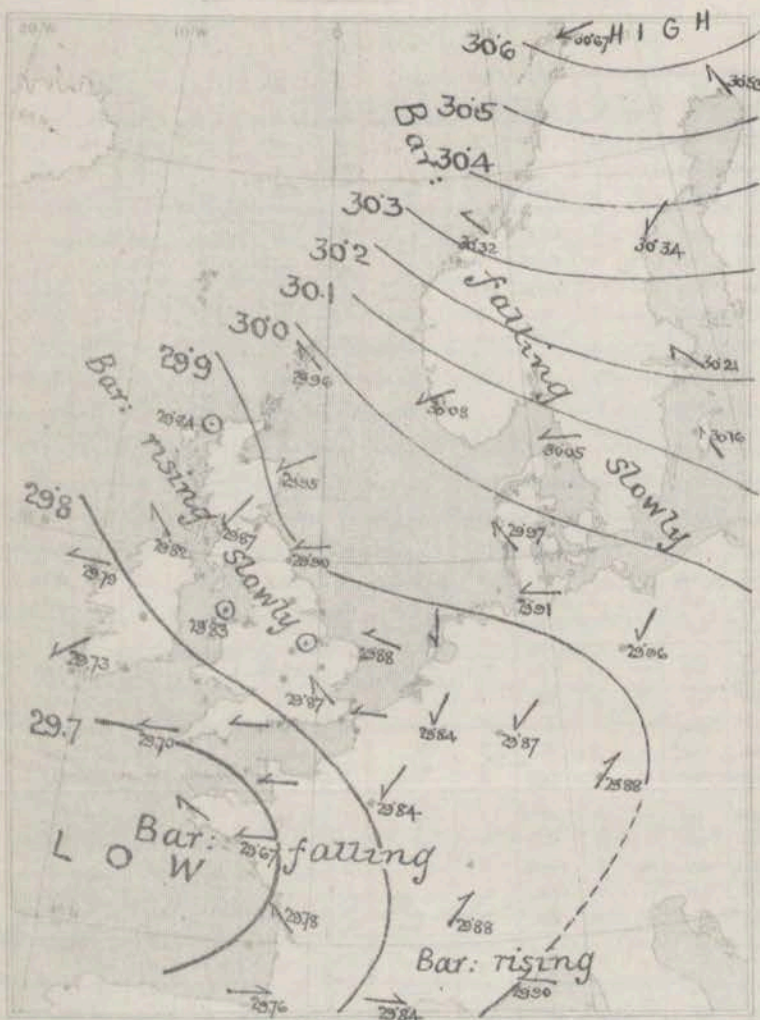 20°W
10°W
0
HIGH
30·67
30·6
30·53
30·5
Bar:
30·4
30·3
30·32
30·34
30·2
falling
30.1
30·0
30·21
29·9
29·96
30·08
Bar:
30·16
30·05
slowly
rising
29·95
29·8
29·97
29·87
29·82
29·90
slowly
29·79
29·91
29·83
29·96
29·88
29·73
29·87
29.7
29·70
29·84
29·87
29·88
29·84
Bar: falling
LOW
29·67
29·78
29·88
Bar: rising
29·90
29·76
29·84